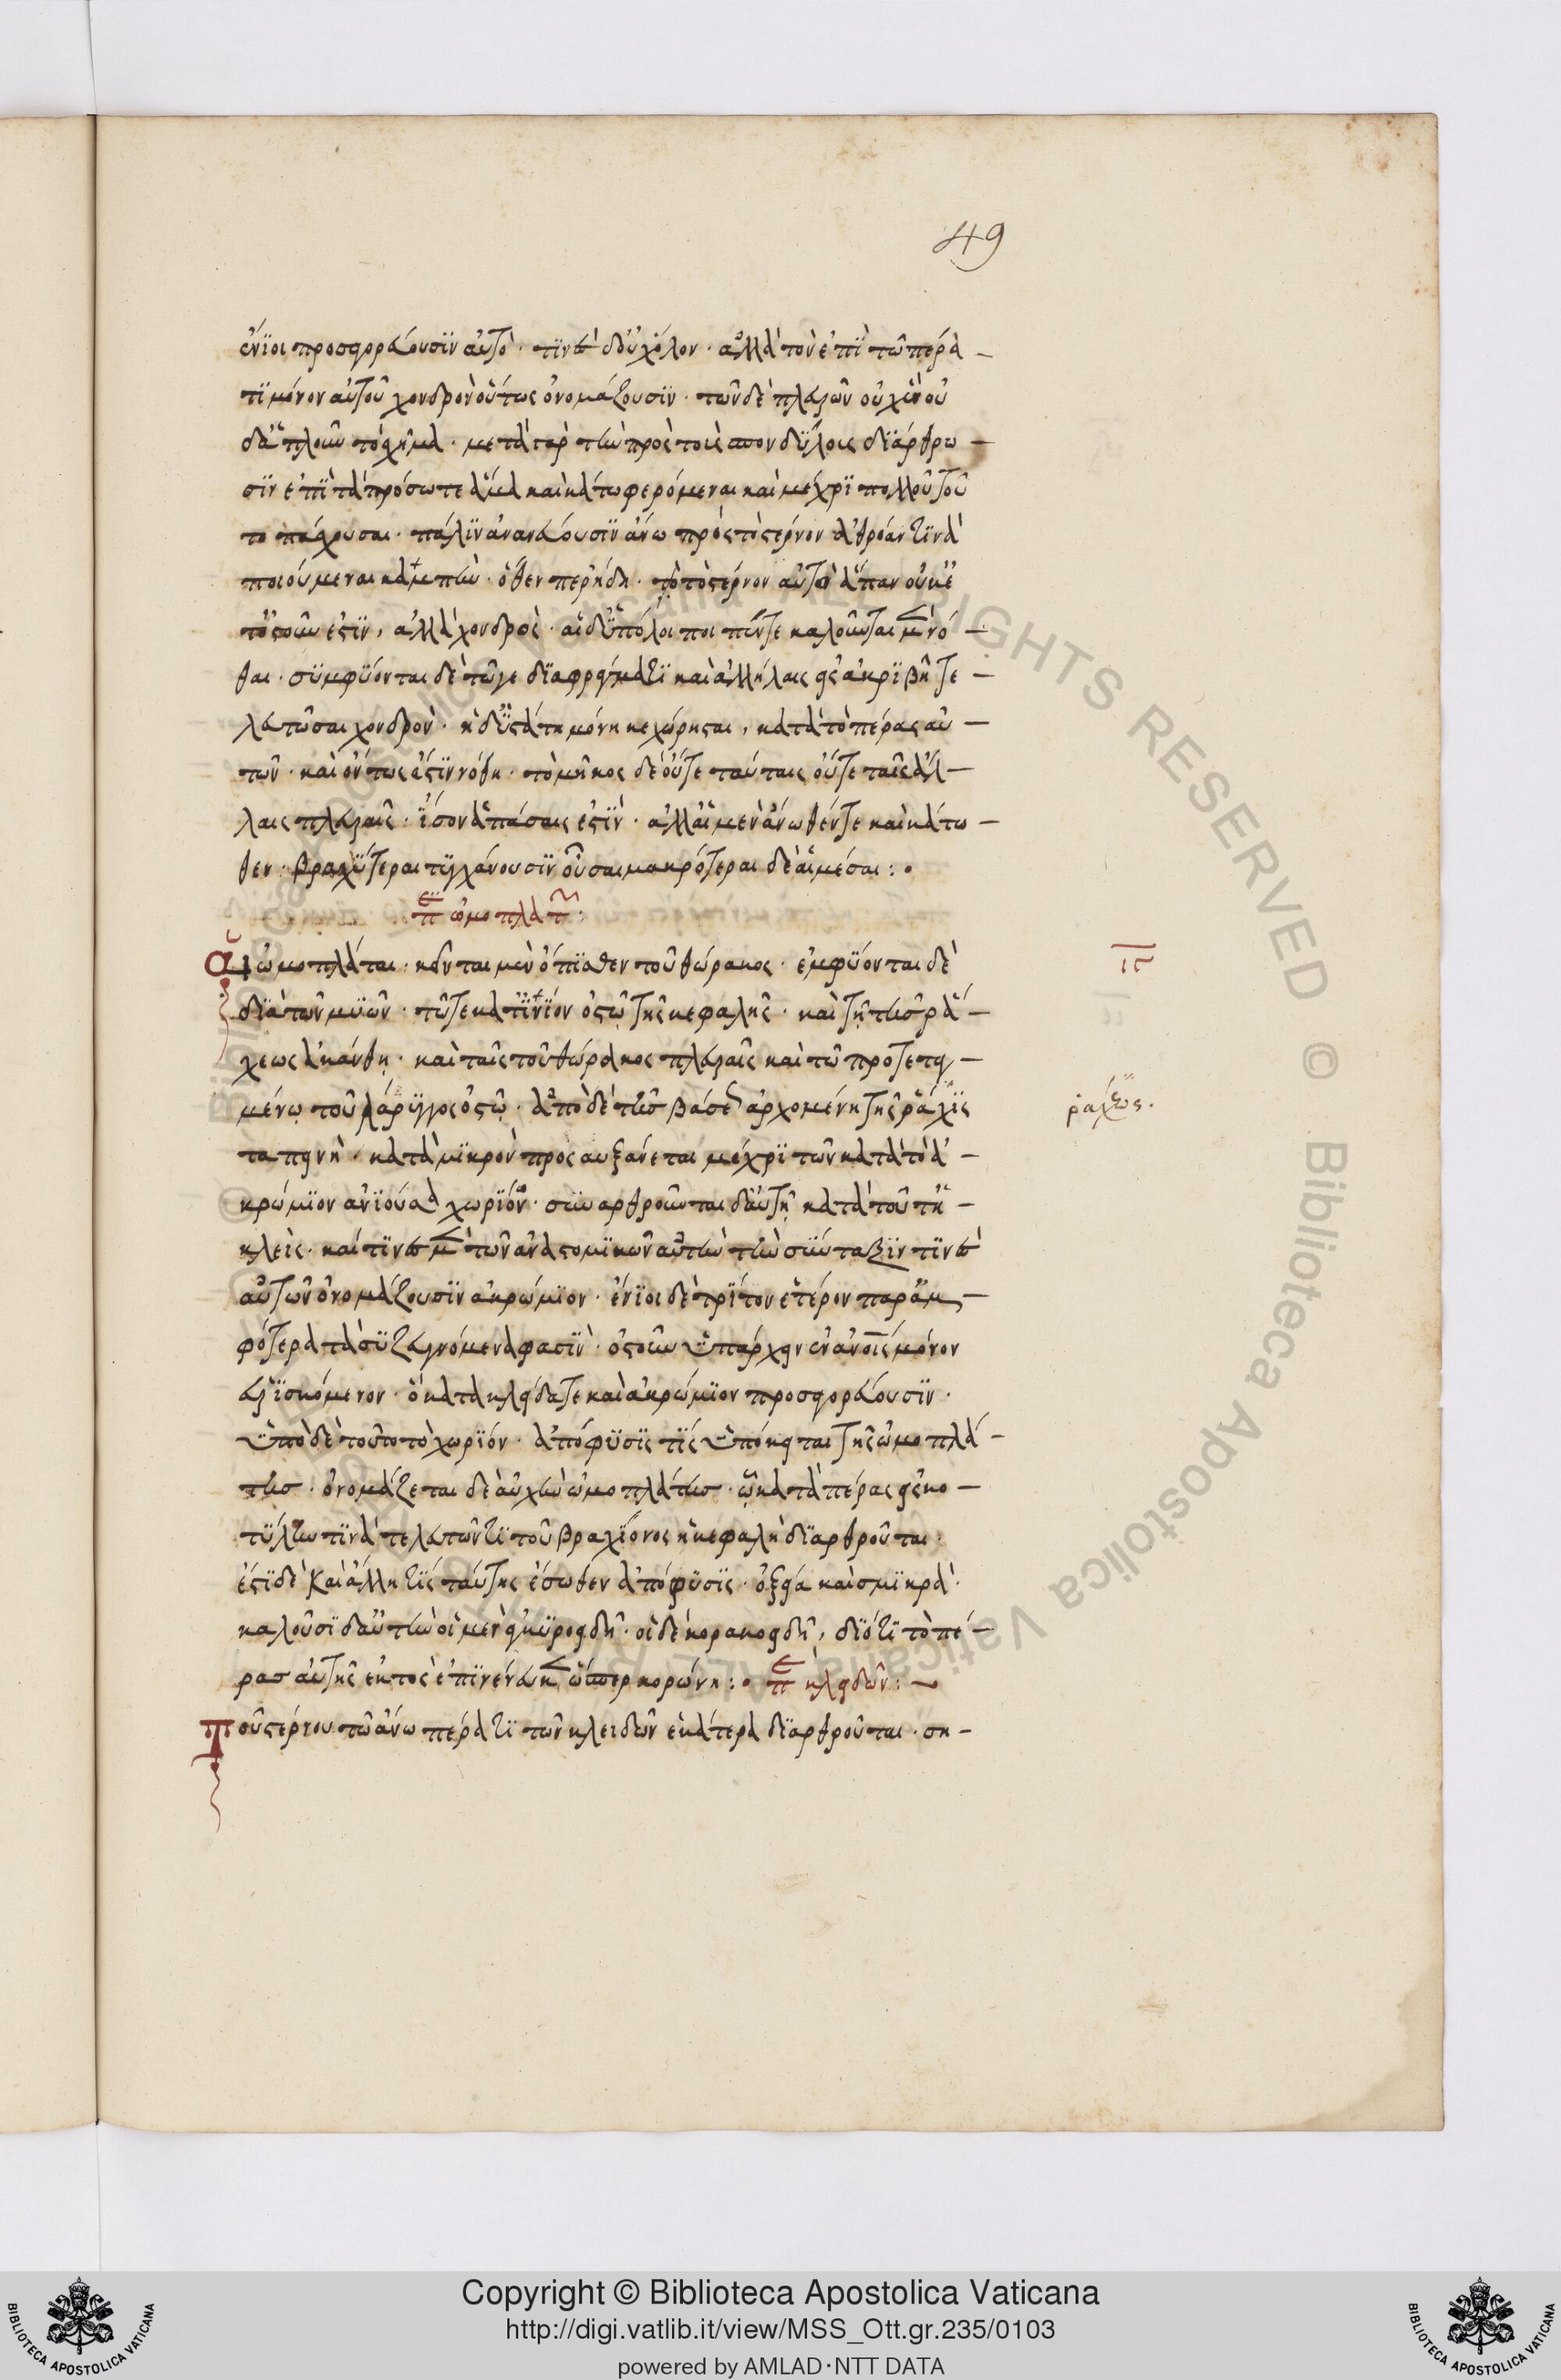 49
ἔνϊοι προσαγορεύουσϊν αὐτὸ· τϊνὲς δ' οὐχ ὅλον· ἀλλὰ τὸν ἐπὶ τῷ πέρα –
τϊ μόνον αὐτοῦ χονδρὸν οὕτως ὀνομάζουσϊν· τῶν δὲ πλευρῶν οὐχ ἓν οὐ
δὲ ἁπλοῦν τὸ σχῆμα· μετὰ γὰρ τὴν πρὸς τοὺς σπονδύλους δϊάρθρω –
σϊν ἐπὶ τὰ πρόσω τε ἅμα καὶ κάτω φερόμεναι καὶ μέχρϊ πολλοῦ τοῦ
το πάσχουσαι· πάλϊν ἀνανεύουσϊν ἄνω πρὸς τὸ στέρνον ἀθρόαν τϊνὰ
ποιούμεναι καμπὴν· ὅθεν περ ἤδη· τὸ στέρνον αὐτὸ ἅπαν οὐκέ
τ' ὀστοῦν ἐστϊν, ἀλλὰ χονδρὸς· αἱ δ' ὑπόλοιποι πέντε καλοῦνται μὲν νό –
θαι· συμφύονται δὲ τῷ γε δϊαφράγματϊ καὶ ἀλλήλαις εἰς ἀκρϊβῆ τε –
λευτῶσαι χονδρὸν· ἡ δ' ὑστάτη μόνη κεχώρϊσται, κατὰ τὸ πέρας αὐ –
τῶν· καὶ ὄντως ἐστϊν νόθη· τὸ μῆκος δὲ οὔτε ταύταις οὔτε ταῖς ἄλ –
λαις πλευραῖς· ἴσον ἁπάσαις ἐστϊν· ἀλλ' αἱ μὲν ἄνωθέν τε καὶ κάτω –
θεν· βραχύτεραι τυγχάνουσϊν οὖσαι μακρότεραι δὲ αἱ μέσαι:·
περὶ ὠμοπλατῶν:
Αἱ ὠμοπλάται· κεῖνται μὲν ὄπϊσθεν τοῦ θώρακος· ἐμφύονται δὲ
δϊὰ τῶν μυῶν· τῷ τε κατ' ἰνίον ὀστῷ τῆς κεφαλῆς· καὶ τῇ τῆς ῥά –
χεως ἀκάνθῃ· καὶ ταῖς τοῦ θώρακος πλευραῖς καὶ τῷ προτεταγ –
μένῳ τοῦ λάρυγγος ὀστῷ· ἀπὸ δὲ τῆς βάσεως ἀρχομένη τῆς ῥάχϊς
ταπεινὴ· κατὰ μϊκρὸν προσαυξάνεται μέχρϊ τῶν κατὰ τὸ ἀ –
κρώμϊον ἀνϊοῦσα χωρϊόν· συναρθροῦται δ' αὐτῇ κατὰ τοῦτ' ἡ –
κλεὶς· καί τϊνες μὲν τῶν ἀνατομϊκῶν αὐτὴν τὴν σύνταξϊν τϊνὲς
αὐτῶν ὀνομάζουσϊν ἀκρώμϊον· ἔνϊοι δὲ τρίτον ἕτερον παρ' ἀμ –
φότερα τὰ συζευγνύμενα φασϊν· ὀστοῦν ὑπάρχειν ἐν ἀνοις μόνον
εὑρϊσκόμενον· ὃ κατακλεῖδά τε καὶ ἀκρώμϊον προσαγορεύουσϊν·
ὑπὸ δὲ τοῦτο τὸ χωρϊόν· ἀπόφυσϊς τϊς ὑπόκειται τῆς ὠμοπλά –
της· ὀνομάζεται δὲ αὐχὴν ὠμοπλάτης· ᾧ κατὰ πέρας εἰς κο –
τύλην τϊνὰ τελευτῶντϊ τοῦ βραχίονος ἡ κεφαλὴ δϊαρθροῦται·
ἔστϊ δὲ καὶ ἄλλη τϊς ταύτης ἔσωθεν ἀπόφυσϊς· ὀξεῖα καὶ σμϊκρὰ·
καλοῦσϊ δ' αὐτὴν οἱ μὲν ἀγκυροειδῆ· οἱ δὲ κορακοειδῆ, δϊότϊ τὸ πέ –
ρας αὐτῆς ἐκτὸς ἐπϊνένευκεν ὥσπερ κορώνη:· περὶ κλειδῶν:
Τοῦ στέρνου τῷ ἄνω πέρατϊ τῶν κλειδῶν ἑκάτερα δϊαρθροῦται· ση –
ιπ
ῥαχέως.
Copyright © Biblioteca Apostolica Vaticana
http://digi.vatlib.it/view/MSS_Ott.gr.235/0103
powered by AMLAD·NTT DATA